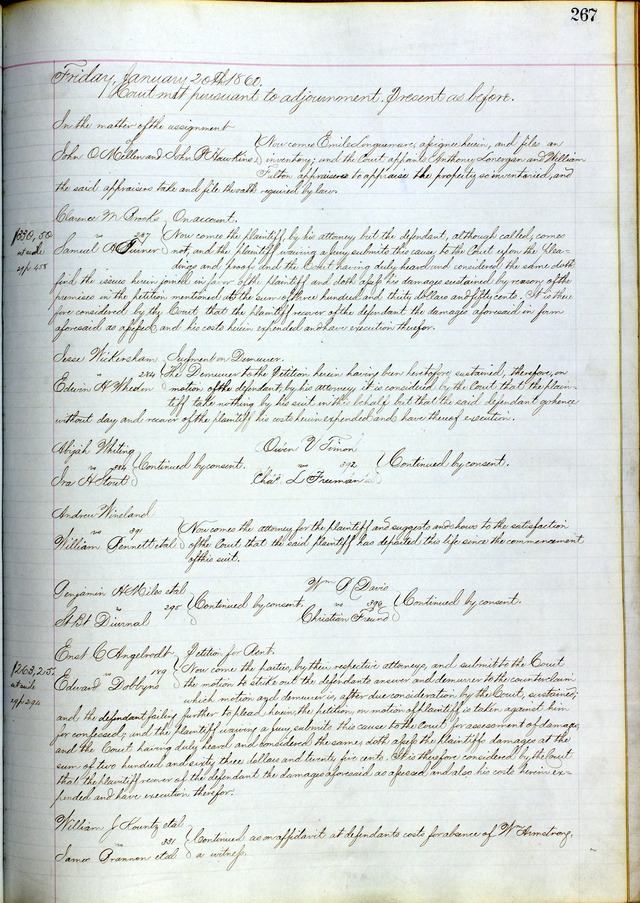 267
Friday, January 20th 1860.
Court met pursuant to adjournment. Present as before.
In the matter of the assignment
of
John O'Mellen and John R Hawkins
Now comes Emile Longuemare, assignee herein, and files an
inventory; and the Court appoints Anthony Lonergan and William
Fulton appraisers to appraise the property so inventoried, and
the said appraisers take and file the oath required by law.
Clarence M Brooks On account.
vs 237
Samuel Turner
Now comes the plaintiff, by his attorney, but the defendant, although called, comes
not, and the plaintiff waiving a jury submits this cause to the Court upon the Plea-
dings and proof, and the Court having duly heard and considered the same doth
find the issues herein joined in favor of the plaintiff and doth assess his damages sustained by reason of the
premises in the petition mentioned at the sum of three hundred and thirty dollars and fifty cents. It is there-
fore considered by the Court, that the plaintiff recover of the defendant the damages aforesaid in form
aforesaid as assessed and his costs herein expended and have execution therefor.
$330,50
Jesse Wickersham Judgment on Demurrer.
vs 244
Edwin H Whedon
The Demurrer to the Petition herein having been heretofore sustained, therefore, on
motion of the defendant, by his attorney it is considered by the Court that the plain-
tiff take nothing by his suit in this behalf but that the said defendant go hence
without day and recover of the plaintiff his costs herein expended and have thereof execution.
Abijah Whiting
vs
Ira H Stout
Continued by consent.
Owen V Timon
vs 292
Chas. L Freeman
Continued by consent.
Andrew Wineland
vs 291
William Bennett et al
Now comes the attorney for the plaintiff and suggests and shows to the satisfaction
of the Court that the said plaintiff has departed this life since the commencement
of this suit.
Benjamin H Miles et al
vs 295
St. Bt Diurnal
Continued by consent.
Wm P Davis
vs 296
Christian Freund
Continued by consent.
Ernst C Angelrodt Petition for Rent.
vs 189
Edward Dobbyns
Now come the parties, by their respective attorneys, and submit to the Court
the motion to strike out the defendants answer and demurrer to the counterclaim
which motion and demurrer is, after due consideration by the Court, sustained;
and the defendant failing further to plead herein, the petition, on motion of plaintiff is taken against him
for confessed; and the plaintiff waiving a jury, submits this cause to the Court for assessment of damages,
and the Court having duly heard and considered the same, doth assess the plaintiffs damages at the
sum of two hundred and sixty three dollars and twenty five cents. It is therefore considered by the Court
that the plaintiff recover of the defendant the damages aforesaid as assessed and also his costs herein ex-
pended and have execution therefor.
$263,25.
William J Kountz et al
vs 331
James Brannon et al
Continued as on affidavit at defendants costs for absence of Wm Armstrong,
a witness.